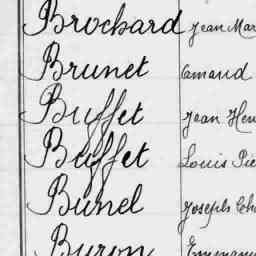 Brochard Jean Mar
Brunet Amand
Buffet Jean Hen
Buffet Louis Pie
Bunel Joseph Cha
Buron Emmanu